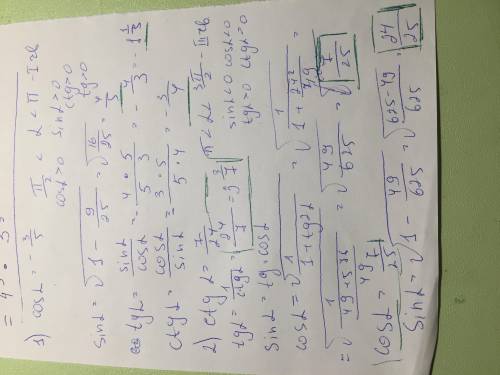 = 45 · 3³
1) cosα = -3/5   π/2 < α < π - II чв
cosα>0  sinα>0
ctg>0
tg>0
sinα = √1 - 9/25 = √16/25 = 4/5
tgα = sinα/cosα = -4·5/5·3 = -4/3 = -1 1/3
ctgα = cosα/sinα = -3·5/5·4 = -3/4
2) ctgα = 7/24   π<α<3π/2 - III чв
tgα = 1/ctgα = 24/7 = 3 3/7   sinα<0 cosα<0
tgα>0 ctgα>0
sinα = tg·cosα
cosα = √1/1+tg2α = √1/1+24²/49 =
= √1/49+576/49 = √49/625 = 7/25
cosα = 7/25
sinα = √1 - 49/625 = √625-49/625 = 24/25